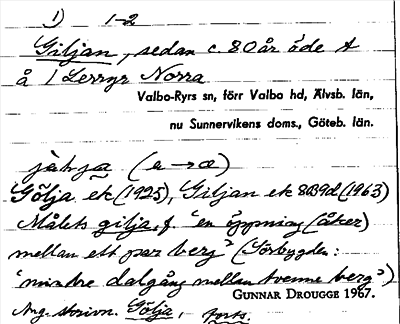 1) 1-2
Giljan, sedan c. 80 år öde t
å 1 Lerryr Norra
Valbo-Ryrs sn, förr Valbo hd, Älvsb. län,
nu Sunnervikens doms., Göteb. län.
jälja (e → æ)
Gölja ek (1925), Giljan ek 8B9d (1963)
Målets gilja, f. "en öppning (åker)
mellan ett par berg" (Förbygden:
"mindre dalgång mellan tvenne berg")
GUNNAR DROUGGE 1967.
Ang. skrivn. Gölja, forts.